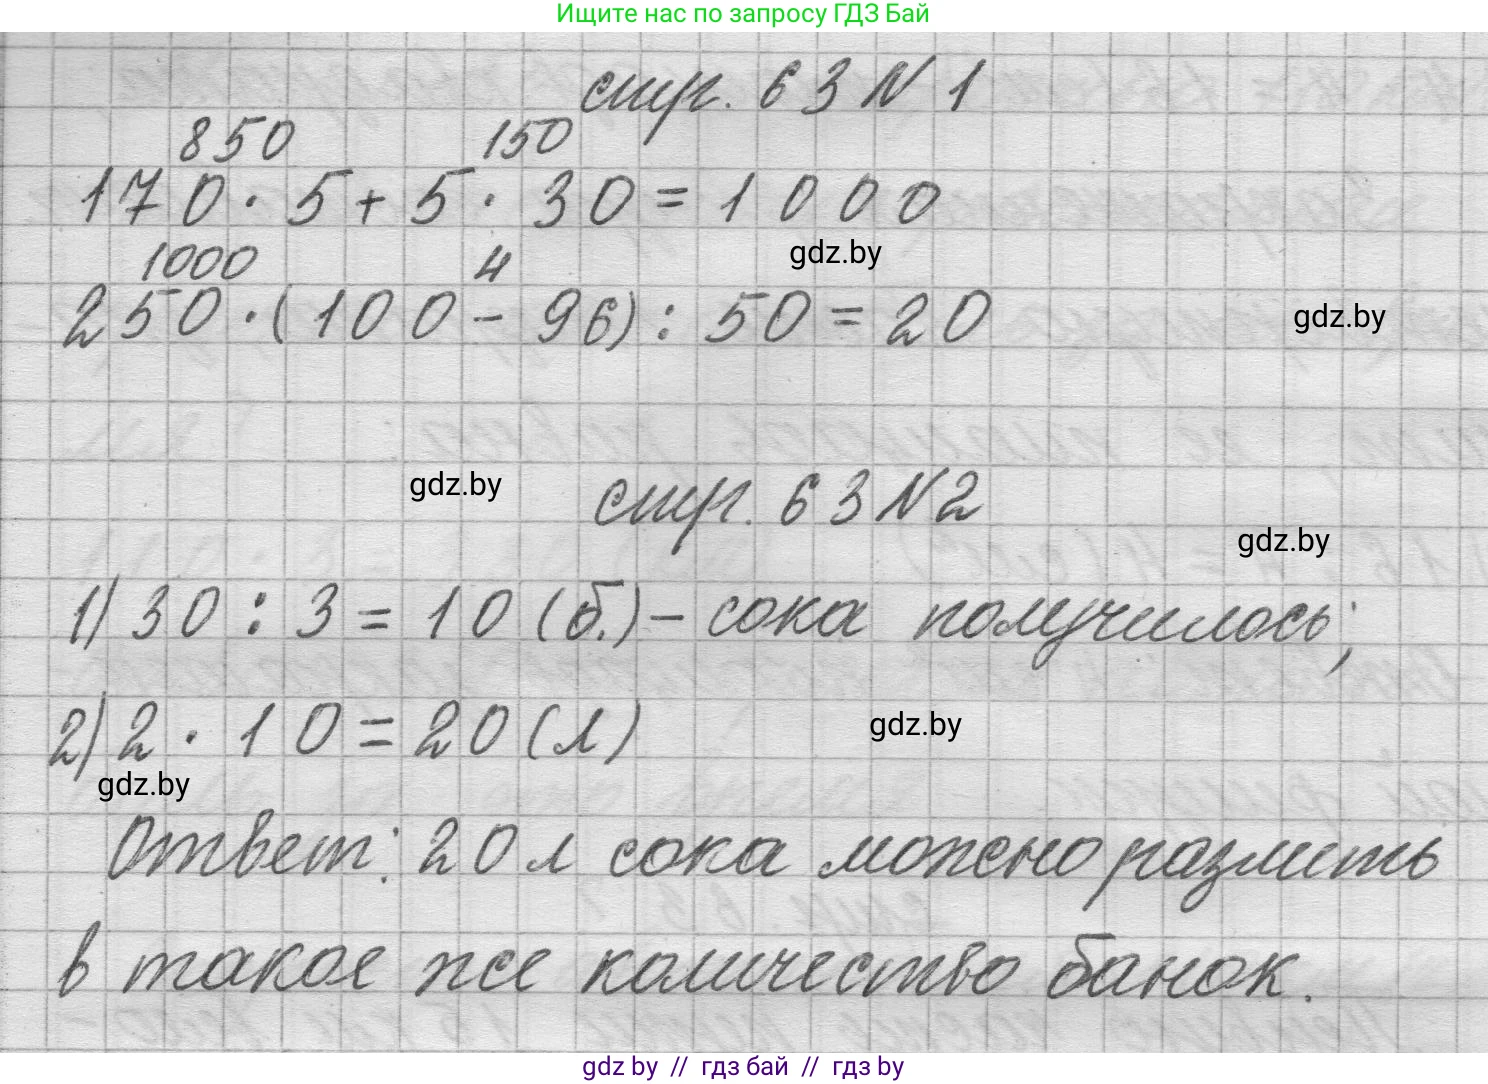 Ищите нас по запросу ГДЗ Бай
стр. 63 N 1
850 150
170 · 5 + 5 · 30 = 1000
gdz.by
1000 4
250 · (100 - 96) : 50 = 20
gdz.by
gdz.by
стр. 63 N 2
gdz.by
1) 30 : 3 = 10 (б.) - сока получилось;
2) 2 · 10 = 20 (л)
gdz.by
gdz.by
Ответ: 20 л сока можно разлить
в такое же количество банок.
gdz by // гдз бай // гдз by